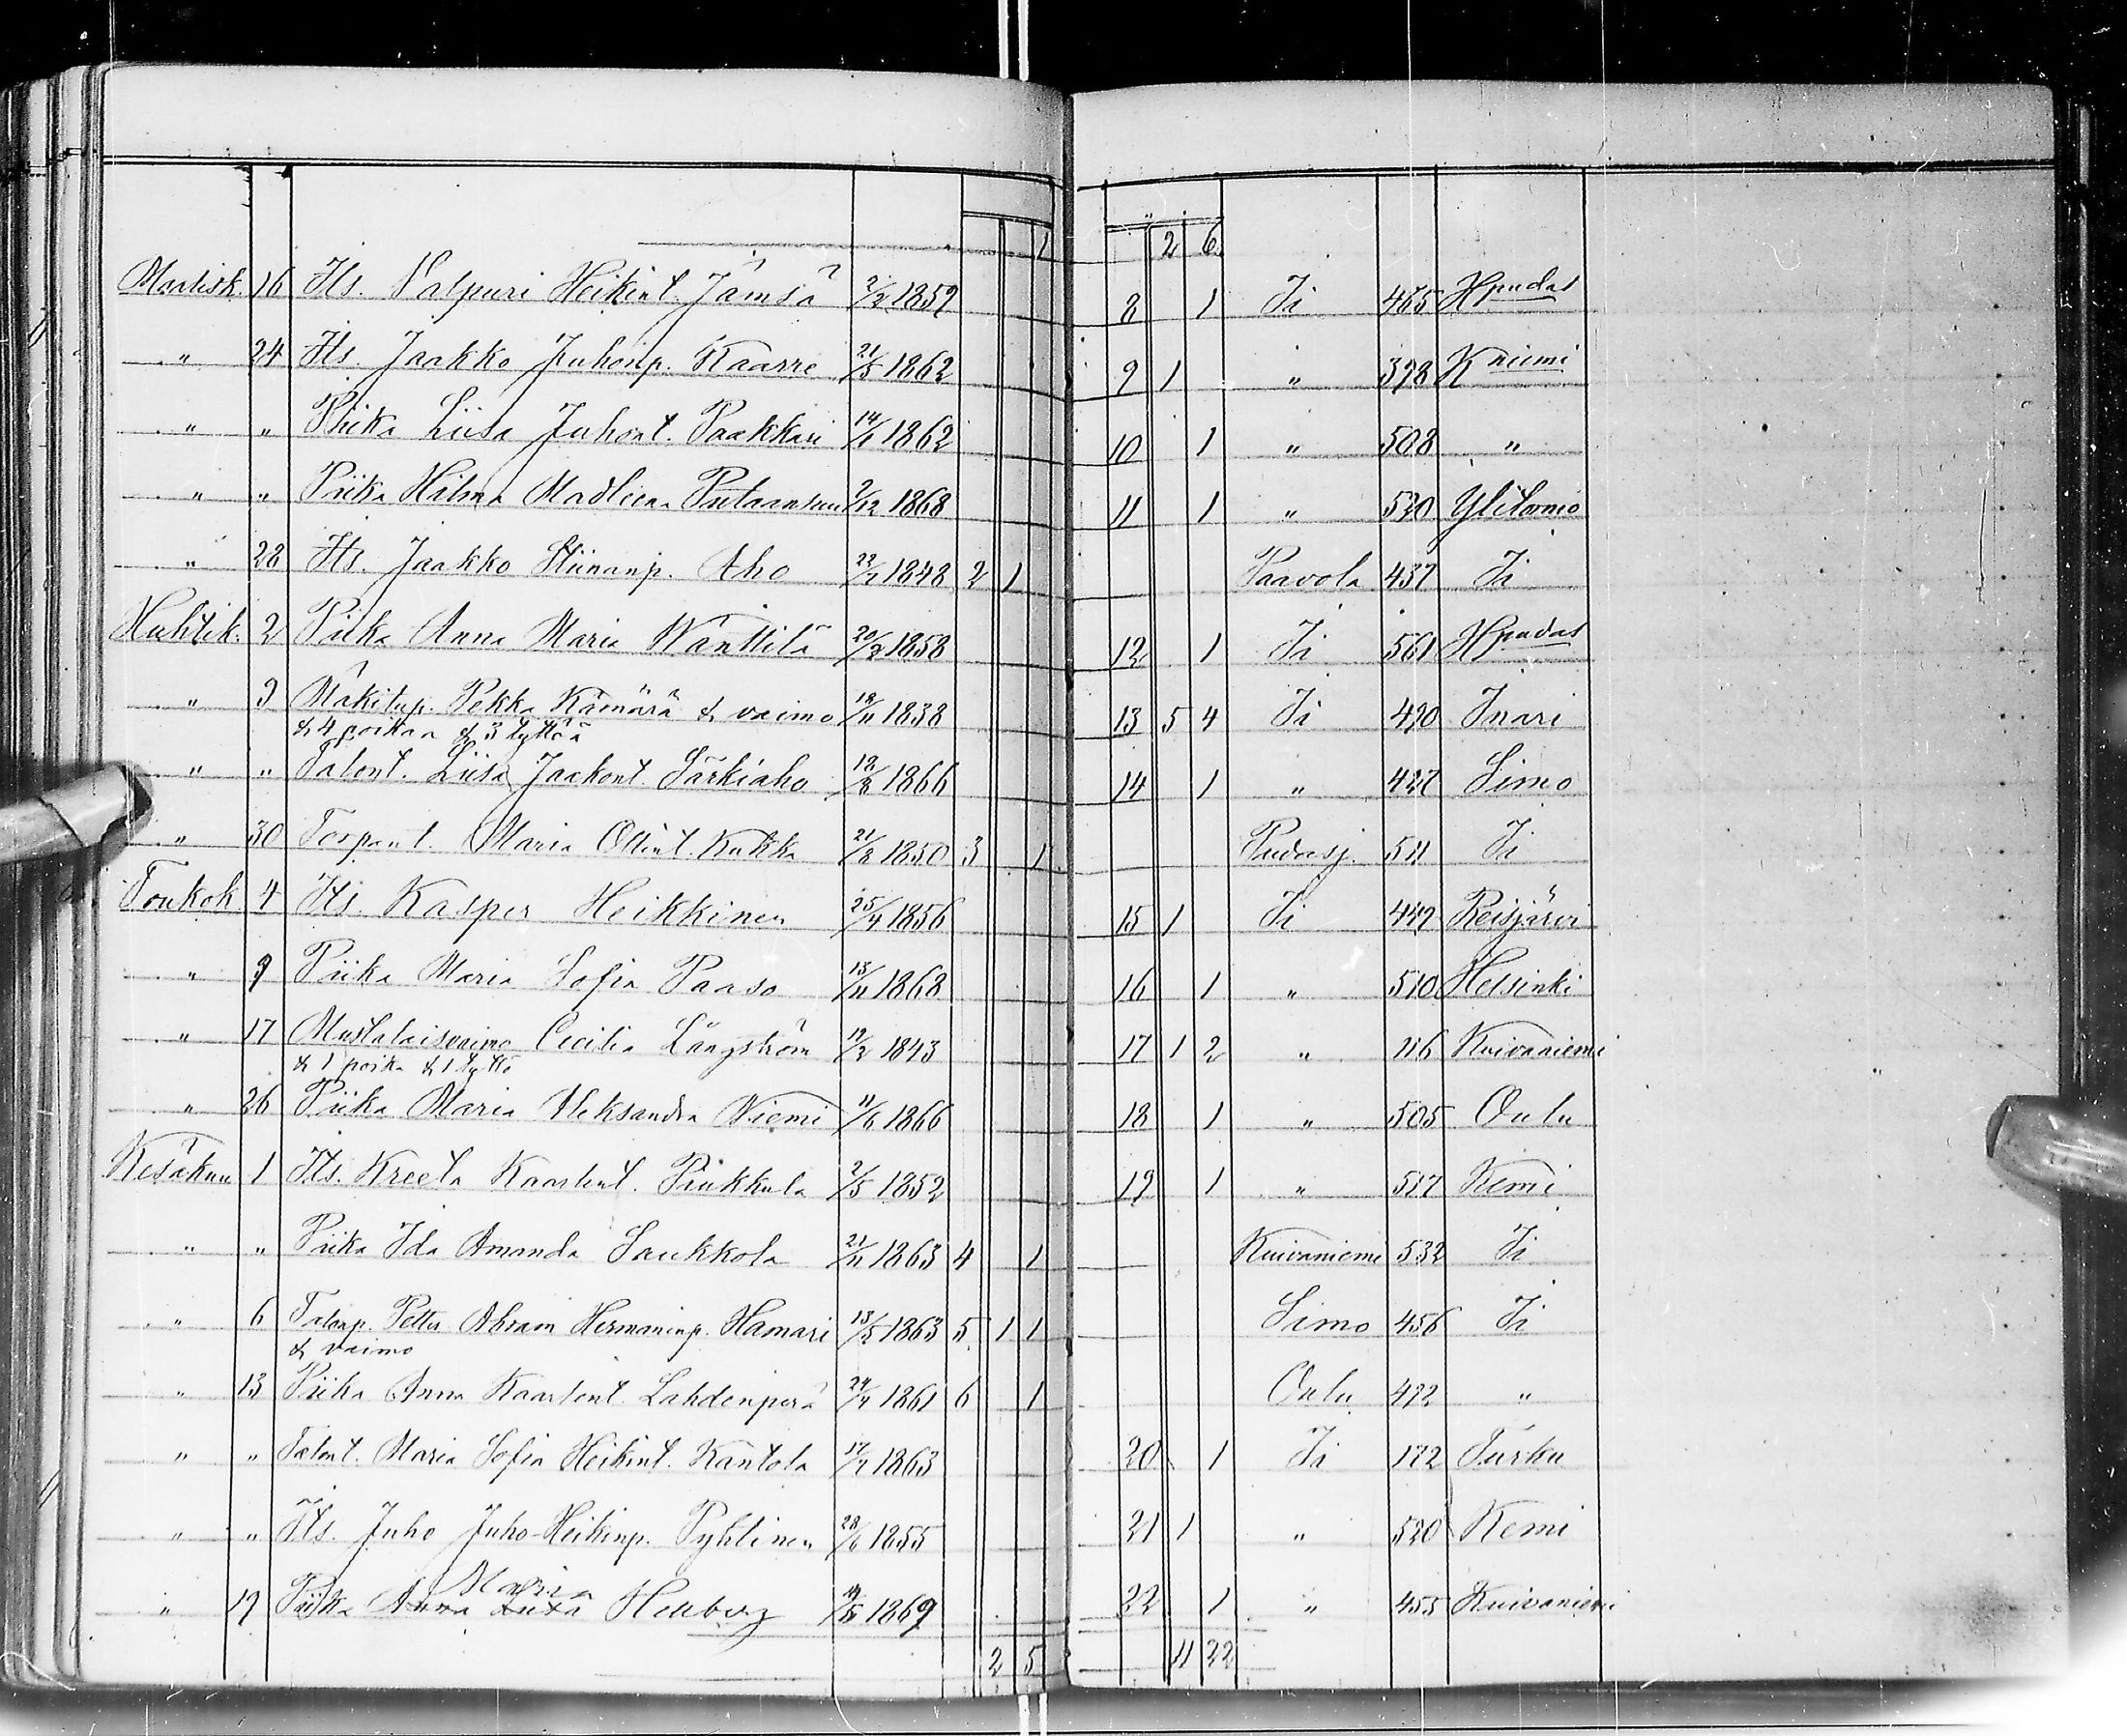 1 2 6
Maalisk. 16 Its. Valpuri Heikint. Jämsä 2/2 1859 8 1 Ii 465 Hpudas
" 24 Its. Jaakko Juhonp. Kaarre 21/5 1862 9 1 " 398 Kniemi
" " Piika Liisa Juhont. Paakkari 14/1 1862 10 1 " 508 "
" " Piika Hilma Madleena Putaansuu 2/12 1868 11 1 " 530 Ylitornio
" 28 Its. Jaakko Stiinanp. Aho 22/7 1848 2 1 Paavola 437 Ii
Huhtik. 2 Piika Anna Maria Wänttilä 20/2 1858 12 1 Ii 561 Hpudas
" 9 Mäkitup. Pekka Kämärä & vaimo 18/11 1838 13 5 4 Ii 490 Inari
& 4 poikaa & 3 tyttöä
" " Talont. Liisa Jaakont. Särkiaho 18/8 1866 14 1 " 427 Simo
" 30 Torpant. Maria Ollint. Kukka 21/8 1850 3 1 Pudasj. 511 Ii
Toukok. 4 Its. Kasper Heikkinen 25/4 1856 15 1 Ii 449 Reisjärvi
" 9 Piika Maria Sofia Paaso 13/11 1868 16 1 " 510 Helsinki
" 17 Mustalaisvaimo Cecilia Långström 12/2 1843 17 1 2 " 116 Kuivaniemi
& 1 poika & 1 tyttö
" 26 Piika Maria Aleksandra Niemi 11/6 1866 18 1 " 505 Oulu
Kesäkuu 1 Its. Kreeta Kaarlent. Pirkkula 2/5 1852 19 1 " 517 Kemi
" " Piika Ida Amanda Saukkola 21/11 1863 4 1 Kuivaniemi 532 Ii
" 6 Talonp. Petter Abram Hermaninp. Hamari 13/5 1863 5 1 1 Simo 456 Ii
& vaimo
" 13 Piika Anna Kaarlent. Lahdenperä 24/4 1861 6 1 Oulu 422 "
" " Talont. Maria Sofia Heikint. Kantola 17/7 1863 20 1 Ii 172 Turku
" " Its. Juho Juho-Heikinp. Pyhtinen 28/6 1855 21 1 " 520 Kemi
Maria
" 19 Piika Anna Hedberg 1869 22 1 " 455 Kuivaniemi
2 5 11 22